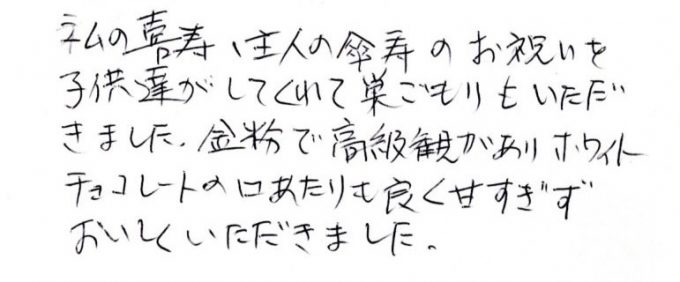 私の喜寿、主人の傘寿のお祝いを
子供達がしてくれて巣ごもりもいただ
きました。金粉で高級観がありホワイト
チョコレートの口あたりも良く甘すぎず
おいしくいただきました。